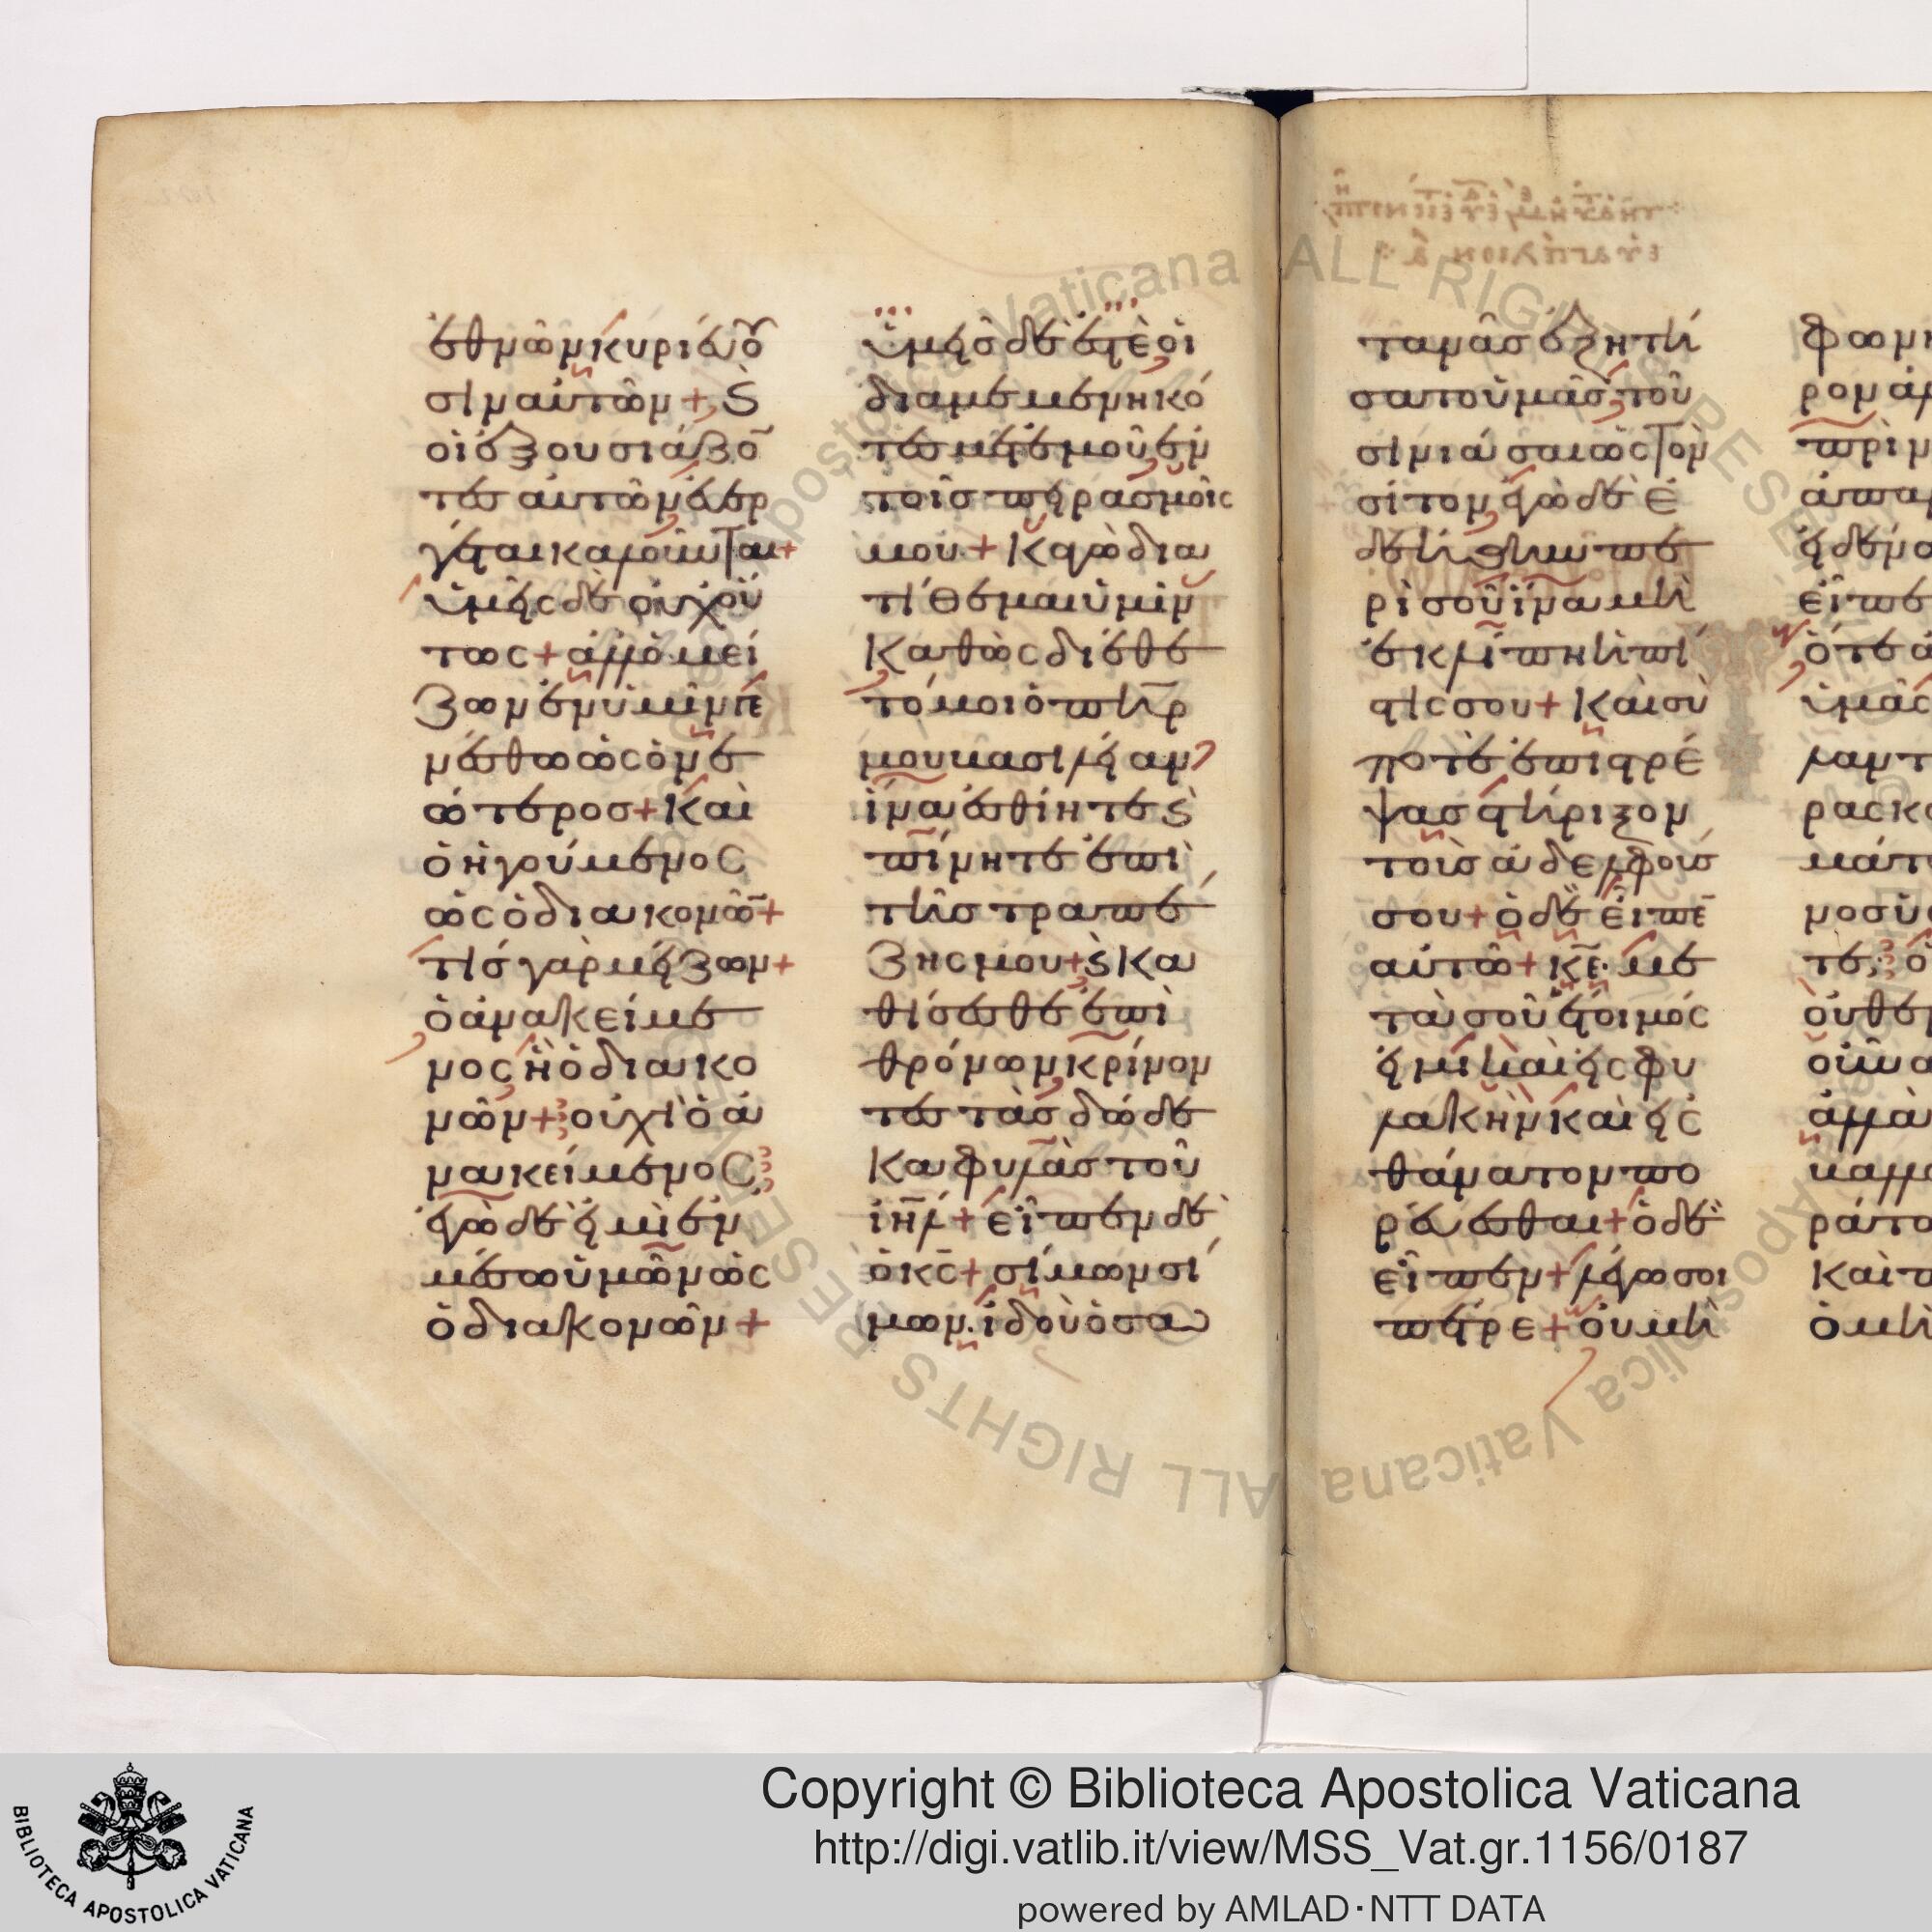 ἐθνῶν κυριεύου
σιν αὐτῶν + ϛ̀
οἱ ἐξουσιάζο
τες αὐτῶν εὐερ
γέται καλοῦνται +
ὑμεῖς δὲ οὐχ οὕ
τως + ἀλλ' ὁ μεί
ζων ἐν ὑμῖν γε
νέσθω ὡς ὁ νε
ώτερος + καὶ
ὁ ἡγούμενος
ὡς ὁ διακονῶ̄ +
τίς γὰρ μείζων +
ὁ ἀνακείμε
νος ἢ ὁ διακο
νῶν + οὐχὶ ὁ ἀ
νακείμενος
ἐγὼ δὲ εἰμὶ ἐν
μέσω ὑμῶν ὡς
ὁ διακονῶν +
ὑμεῖς δὲ ἐστὲ οἱ
διαμεμενηκό
τες μετ' ἐμοῦ ἐν
τοῖς πειρασμοῖς
μου + κἀγὼ δια
τίθεμαι ὑμῖν
καθὼς διέθε
το μοι ὁ πη̄ρ
μου βασιλείαν
ἵνα ἐσθίητε ϛ̀
πίνητε ἐπὶ
τῆς τραπέ
ζης μου + ϛ̀ κα
θίσεσθε ἐπὶ
θρόνων κρίνον
τες τὰς δώδε
κα φυλὰς τοῦ
ἰη̄λ + εἶπεν δὲ
ὁ κς̄ + σίμων σί
μων. ἰδοὺ ὁ σα
τανᾶς ἐξητή
σατο ὑμᾶς τοῦ
σινιάσαι ὡς τὸν
σίτον ἐγὼ δὲ ἐ
δεήθην πε
ρὶ σοῦ ἵνα μὴ
ἐκλίπη ἡ πί
στις σου + καὶ σὺ
ποτὲ ἐπιστρέ
ψας στήριξον
τοὺς ἀδελφούς
σου + ὁ δὲ εἶπε̄
αὐτῶ + κε̄. με
τὰ σοῦ ἕτοιμός
εἰμι καὶ εἰς φυ
λακὴν καὶ εἰς
θάνατον πο
ρεύεσθαι + ὁ δὲ
εἶπεν + λέγω σοι
πέτρε + οὐ μὴ
φωνή
ρον ἀ
πρὶν
ἀπαρ
εἰδένα
εἶπε
ὅτε ἀ
ὑμᾶς
λαντ
ρας κ
μάτω
μοσὺ
τε. ὁ
οὐθεν
οὖν α
ἀλλὰ
βαλλα
ράτω
καὶ π
ὁ μὴ
Copyright © Biblioteca Apostolica Vaticana
http://digi.vatlib.it/view/MSS_Vat.gr.1156/0187
powered by AMLAD·NTT DATA
BIBLIOTECA APOSTOLICA VATICANA